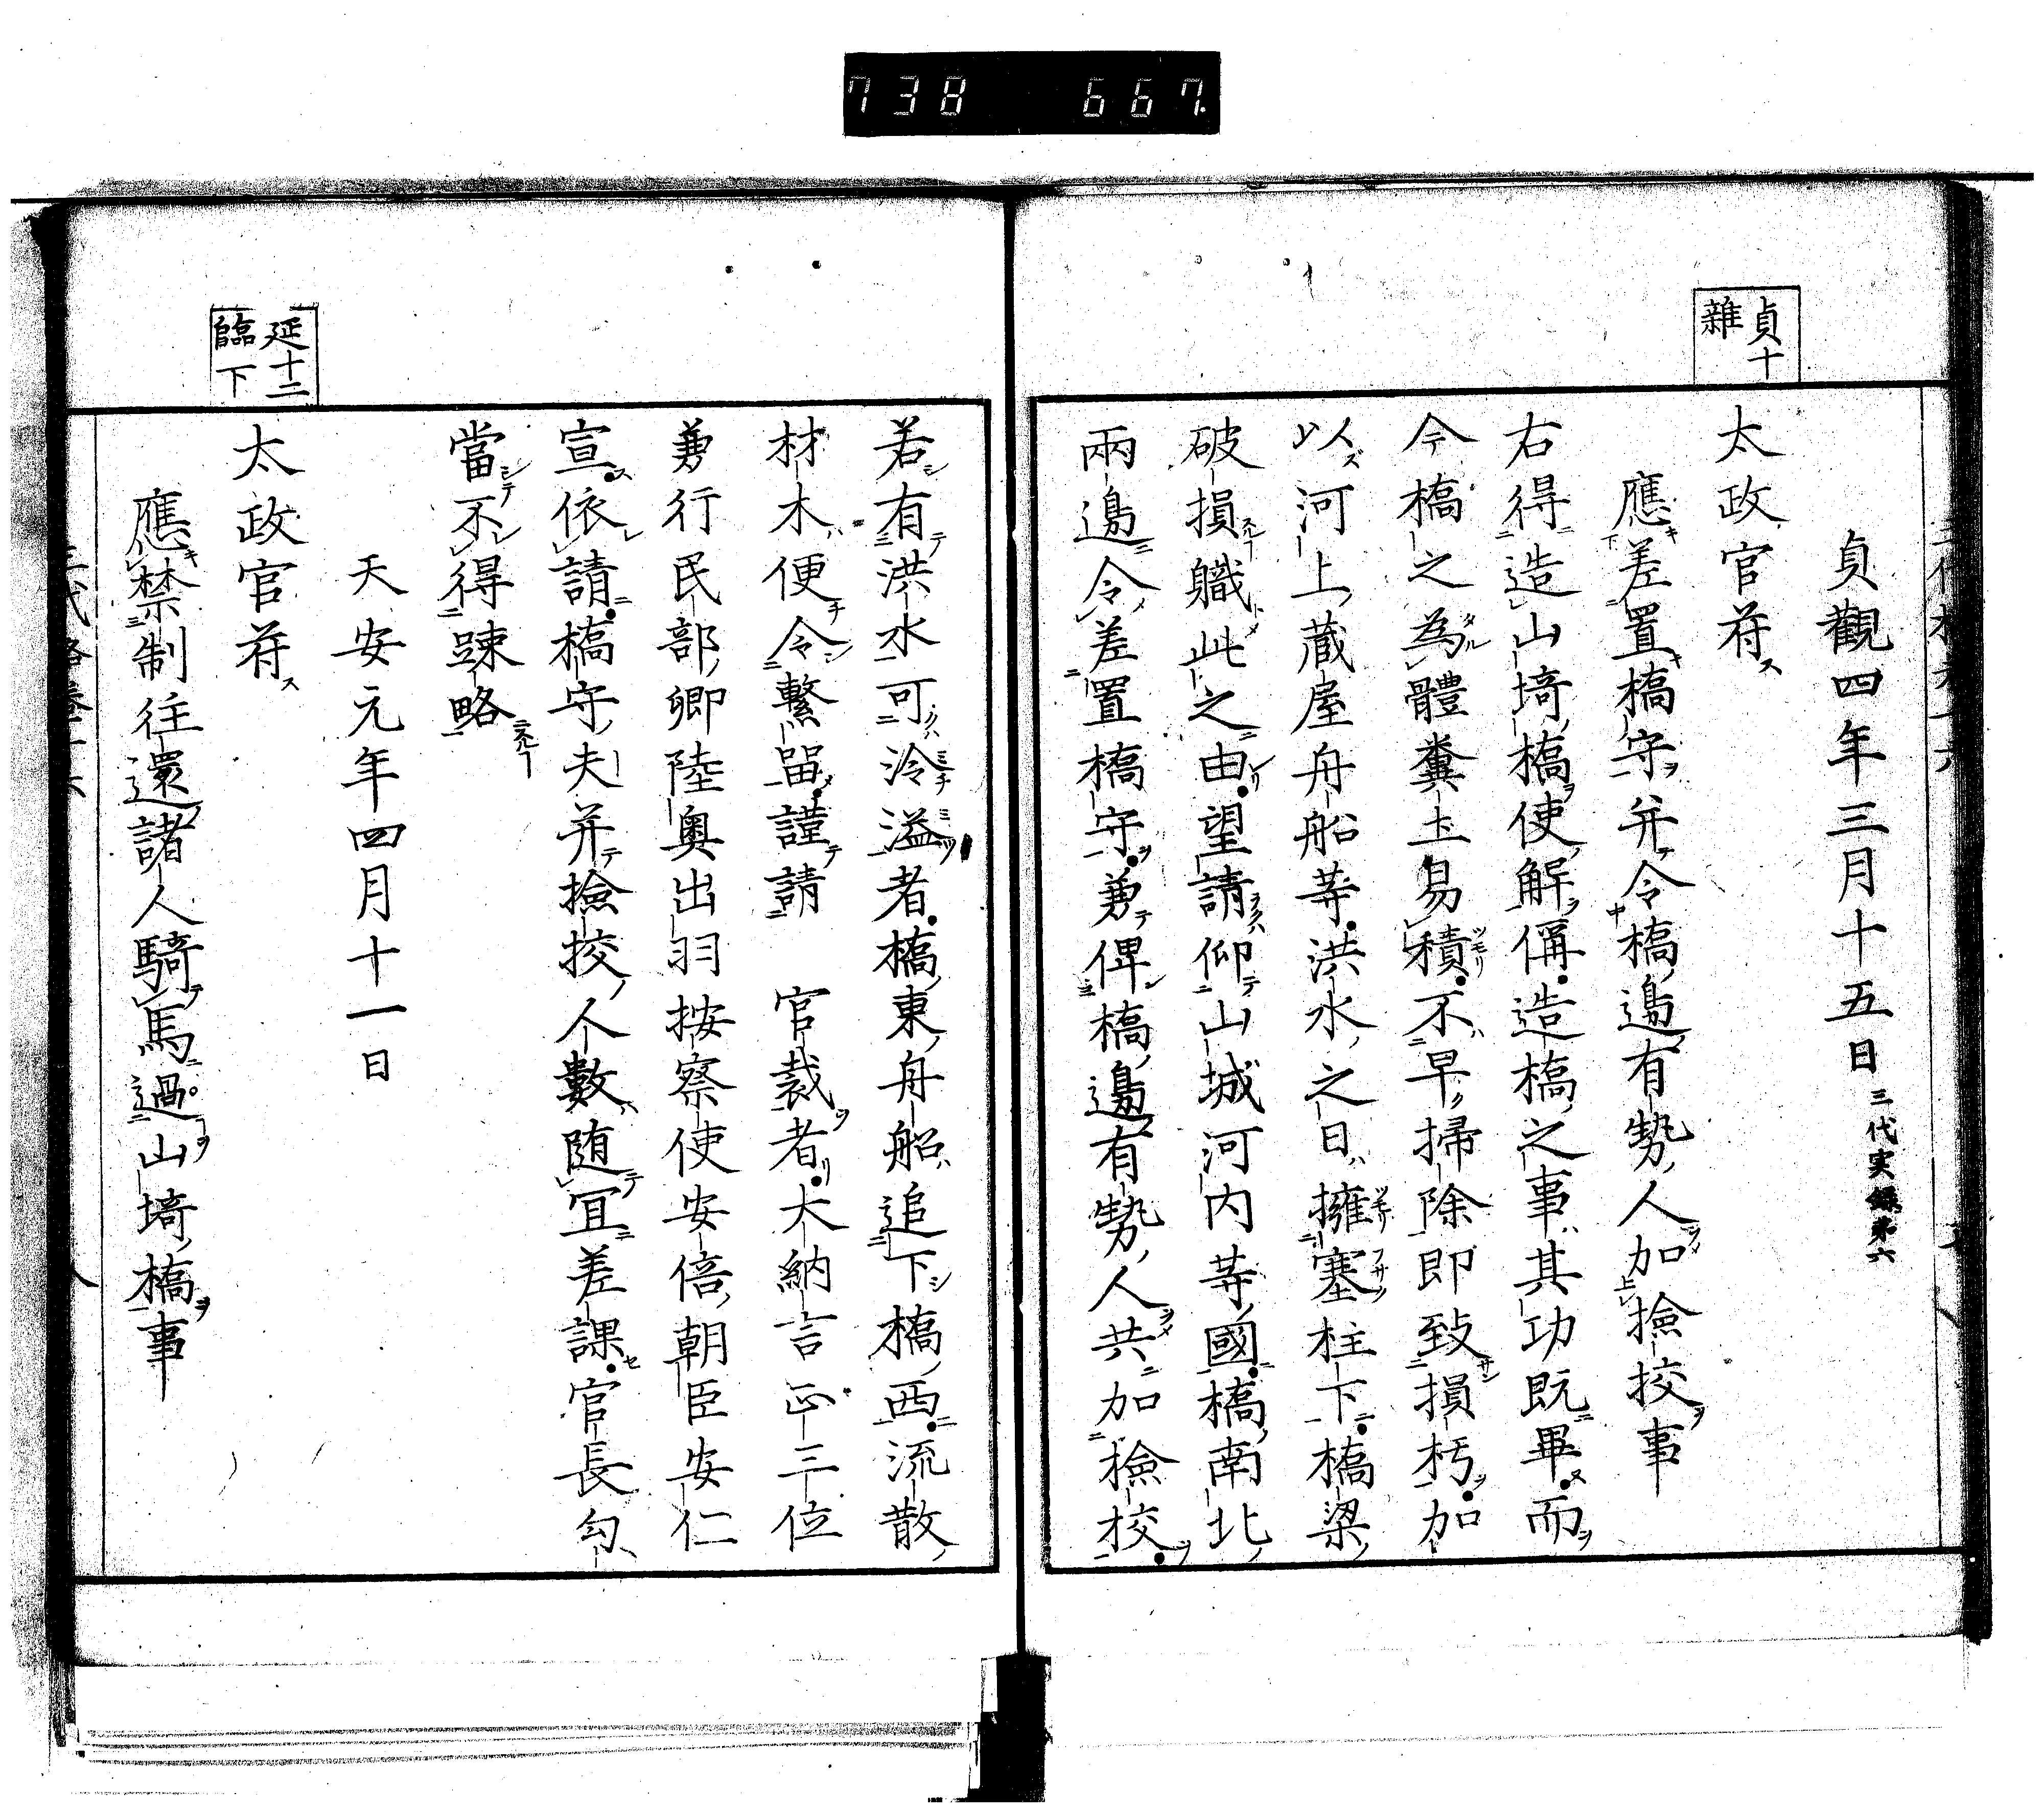 738 667
貞觀四年三月十五日 三代実録第六
貞十
雜
太政官符ス
應差置橋守并令橋邊有勢人加撿挍事
右得造山埼橋使解偁造橋之事其功既畢而
今橋之為體糞土易積不早掃除即致損朽加
以河上蔵屋舟船等洪水之日擁塞柱下橋梁
破損軄此之由望請仰山城河内等國橋南北
兩邊令差置橋守兼俾橋邊有勢人共加撿挍
若有洪水可泠溢者橋東舟船追下橋西流散
材木便令繫留謹請 官裁者大納言正三位
兼行民部卿陸奥出羽按察使安倍朝臣安仁
宣依請橋守夫并撿挍人數随冝差課官長勾
當不得踈略
天安元年四月十一日
延十二
臨下
太政官符ス
應禁制往還諸人騎馬過山埼橋事